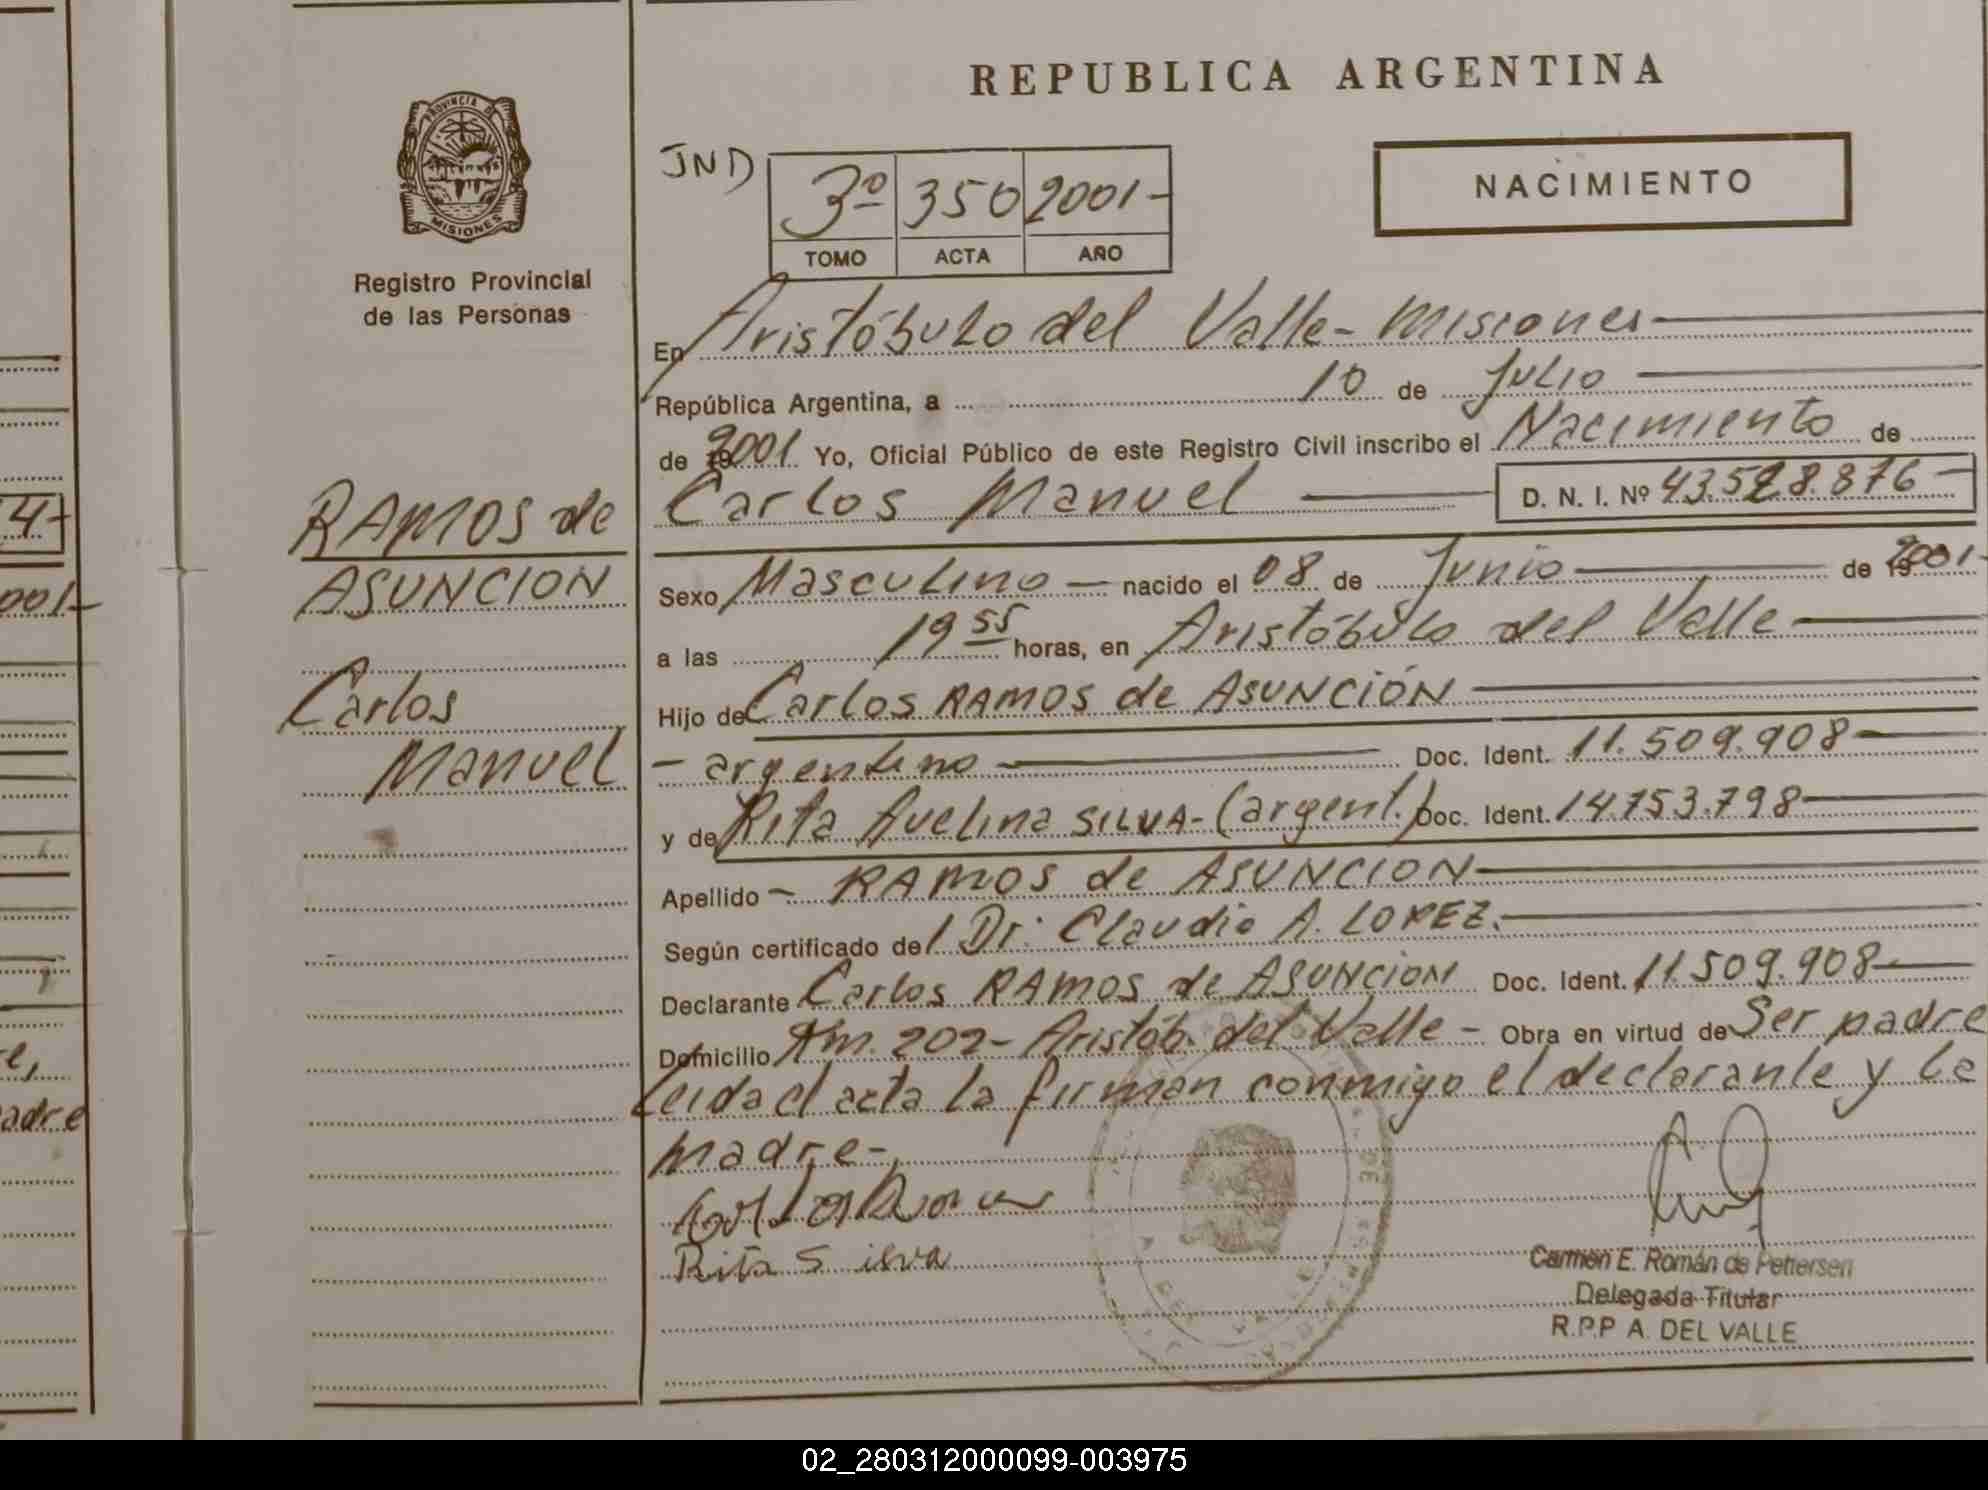 REPUBLICA ARGENTINA
PROVINCIA DE
MISIONES
Registro Provincial
de las Personas
JND
3º 350 2001-
TOMO ACTA AÑO
NACIMIENTO
En Aristóbulo del Valle- Misiones
República Argentina, a 10 de Julio
de 2001 Yo, Oficial Público de este Registro Civil inscribo el Nacimiento de
Carlos Manuel D. N. I. Nº 43.528.876-
RAMOS de
ASUNCION
Carlos
Manuel
Sexo Masculino - nacido el 08 de Junio de 2001-
a las 19 55 horas, en Aristóbulo del Valle
Hijo de Carlos RAMOS de ASUNCIÓN
- argentino Doc. Ident. 11.509.908
y de Rita Avelina SILVA- (argent.) Doc. Ident. 14.753.798
Apellido - RAMOS de ASUNCION
Según certificado del Dr. Claudio A. LOPEZ.
Declarante Carlos RAMOS de ASUNCION Doc. Ident. 11.509.908
Domicilio Km. 202- Aristób. del Valle - Obra en virtud de Ser padre
Leida el acta la firman conmigo el declarante y la
madre-
Rita Silva
Carmen E. Román de Pettersen
Delegada Titular
R.P.P A. DEL VALLE
4-
001-
e,
adre
02_280312000099-003975